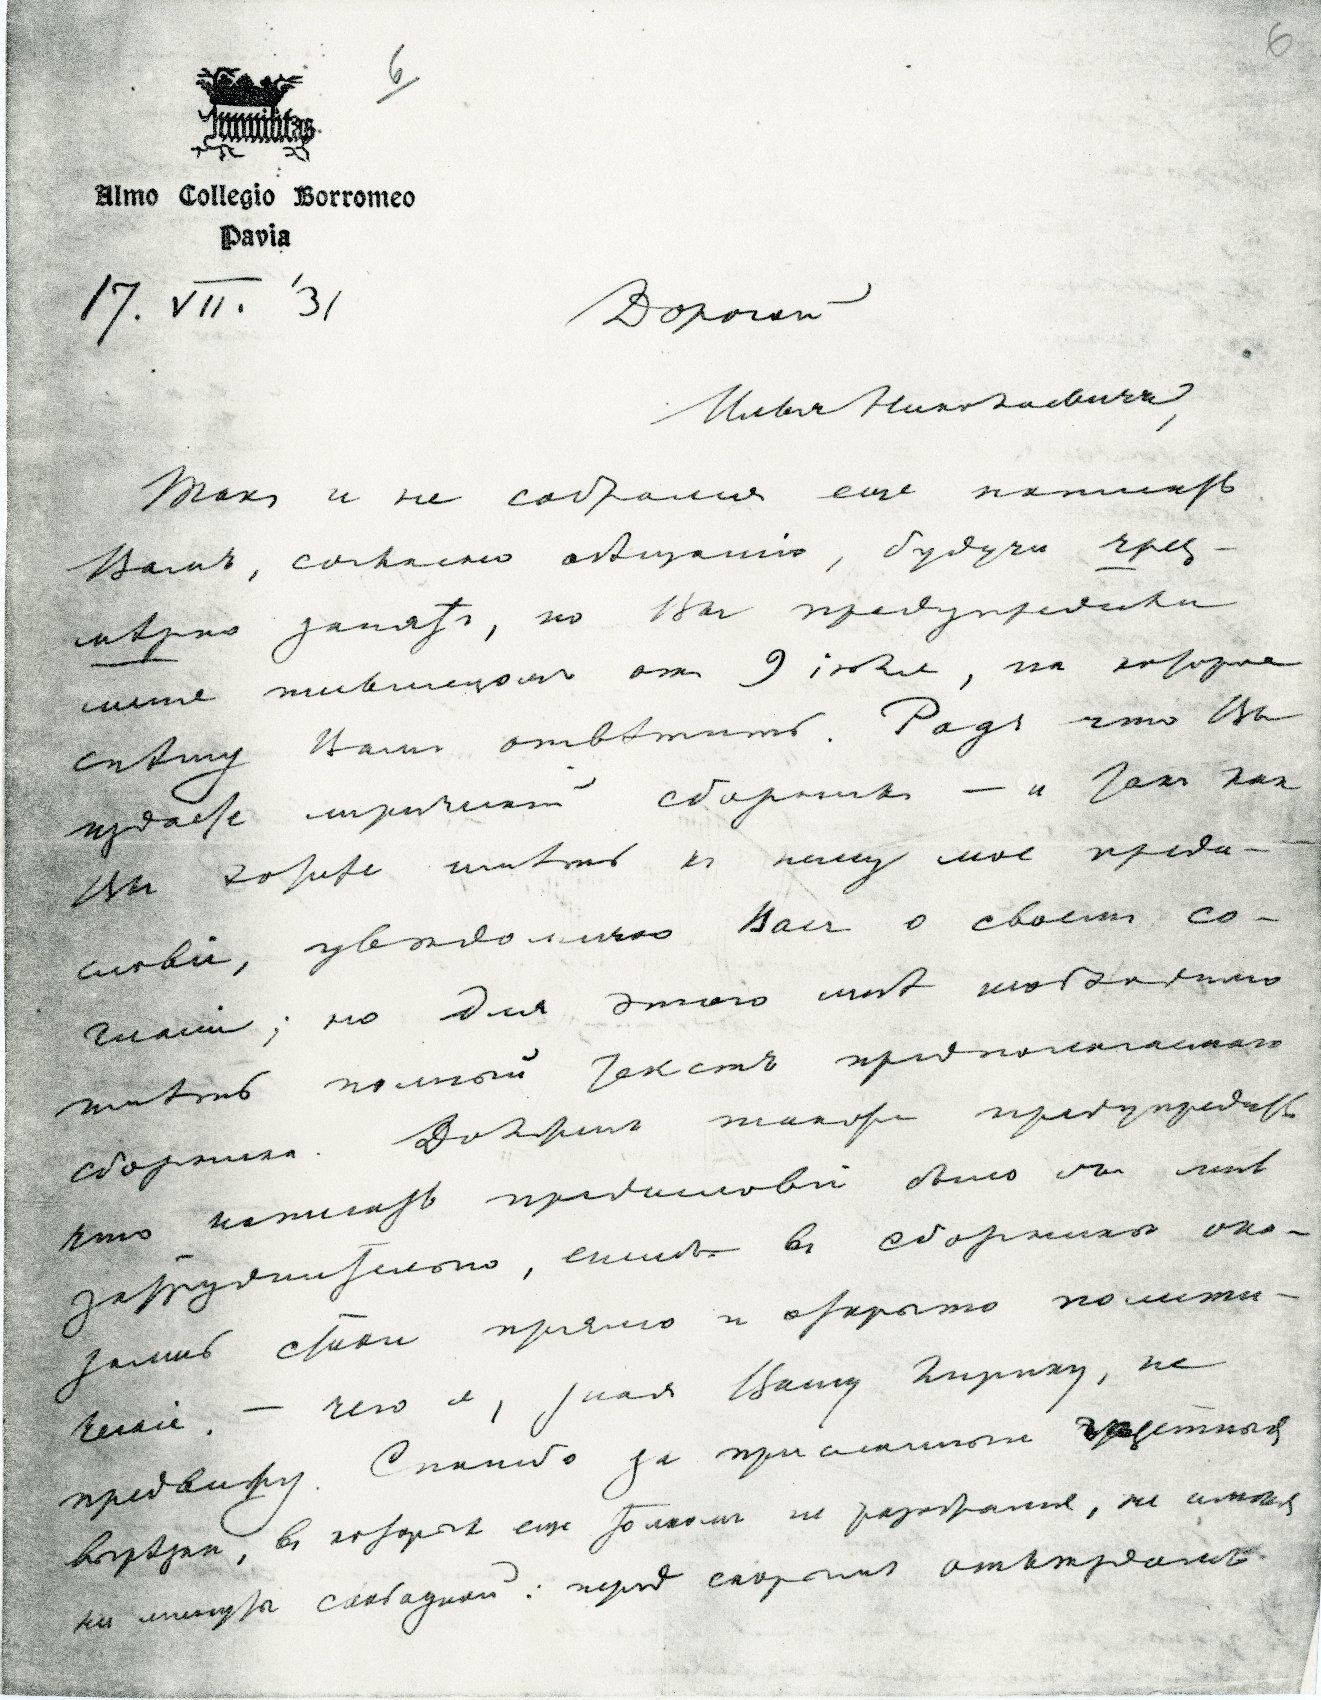 6
6
Humilitas
Almo Collegio Borromeo
Pavia
17. VII. '31
Дорогой
Илья Николаевичъ,
Такъ и не собрался еще написать
Вамъ, согласно обѣщанію, будучи чрез-
мѣрно занятъ, но Вы предупредили
меня письмецомъ отъ 9 іюля, на которое
спѣшу Вамъ отвѣтить. Радъ что Вы
издаете лирическій сборникъ — и такъ какъ
Вы хотите имѣть къ нему мое преди-
словіе, увѣдомляю Васъ о своемъ со-
гласіи; но для этого мнѣ необходимо
имѣть полный текстъ предполагаемаго
сборника. Долженъ также предупредить
что написать предисловіе было бы мнѣ
затруднительно, еслибъ въ сборникѣ ока-
зались стихи прямо и открыто полити-
ческіе, — чего я, зная Вашу лирику, не
предвижу. Спасибо за присланныя газетныя
вырѣзки, въ которыхъ еще толкомъ не разобрался, не имѣя
ни минуты свободной: передъ скорымъ отъѣздомъ